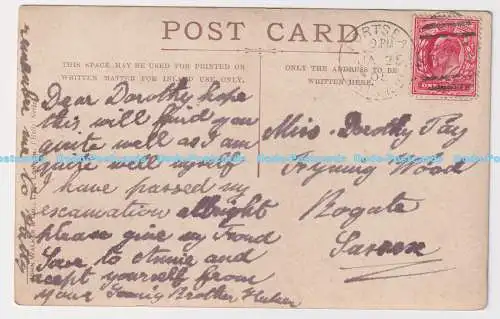 POST CARD
THIS SPACE MAY BE USED FOR PRINTED OR
WRITTEN MATTER FOR INLAND USE ONLY.
ONLY THE ADDRESS TO BE
WRITTEN HERE.
9 PM
Dear Dorothy hope
this will find you
quite well as I am
quite well myself
I have passed my
excamation allright
please give my Frond
Love to Annie and
acept yourself from
your Loving Brother
Miss Dorothy Tay
Wood
Rogate
Sussex